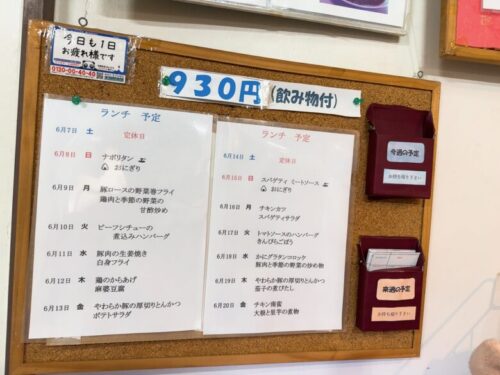 今日も1日
お疲れ様です
0120-00-40-40
930円(飲み物付)
ランチ 予定
6月7日 土 定休日
6月8日 日 ナポリタン
おにぎり
6月9日 月 豚ロースの野菜巻フライ
鶏肉と季節の野菜の
甘酢炒め
6月10日 火 ビーフシチューの
煮込みハンバーグ
6月11日 水 豚肉の生姜焼き
白身フライ
6月12日 木 鶏のからあげ
麻婆豆腐
6月13日 金 やわらか豚の厚切りとんかつ
ポテトサラダ
ランチ 予定
6月14日 土 定休日
6月15日 日 スパゲティ ミートソース
おにぎり
6月16日 月 チキンカツ
スパゲティサラダ
6月17日 火 トマトソースのハンバーグ
きんぴらごぼう
6月18日 水 かにグラタンコロッケ
豚肉と季節の野菜の炒め物
6月19日 木 やわらか豚の厚切りとんかつ
茄子の煮びたし
6月20日 金 チキン南蛮
大根と里芋の煮物
今週の予定
お持ち帰り下さい
来週の予定
お持ち帰り下さい